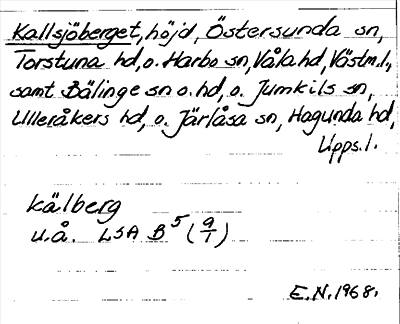 Kallsjöberget, höjd, Östersunda sn,
Torstuna hd, o. Harbo sn, Våla hd, Västm.l.,
samt Bälinge sn o. hd, o. Jumkils sn,
Ulleråkers hd, o. Järlåsa sn, Hagunda hd,
Upps.l.
kälberg
u.å. LSA B⁵ (9/1)
E.N. 1968.